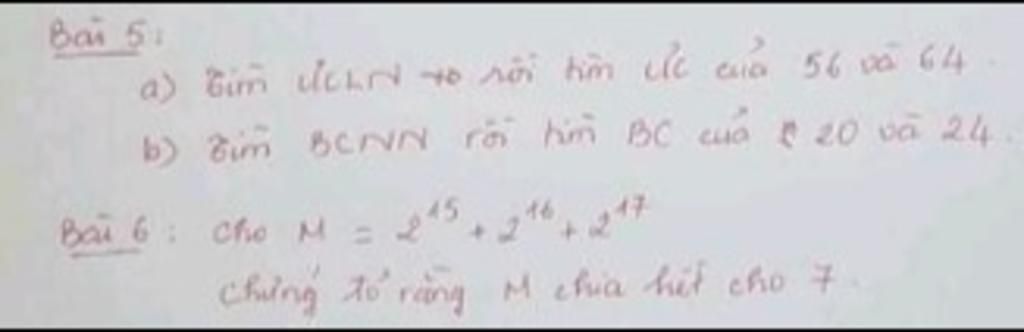 Bài 5:
a) Tìm ƯCLN rồi tìm ƯC của 56 và 64.
b) Tìm BCNN rồi tìm BC của 20 và 24.
Bài 6: Cho M = 2¹⁵ + 2¹⁶ + 2¹⁷
Chứng tỏ rằng M chia hết cho 7.